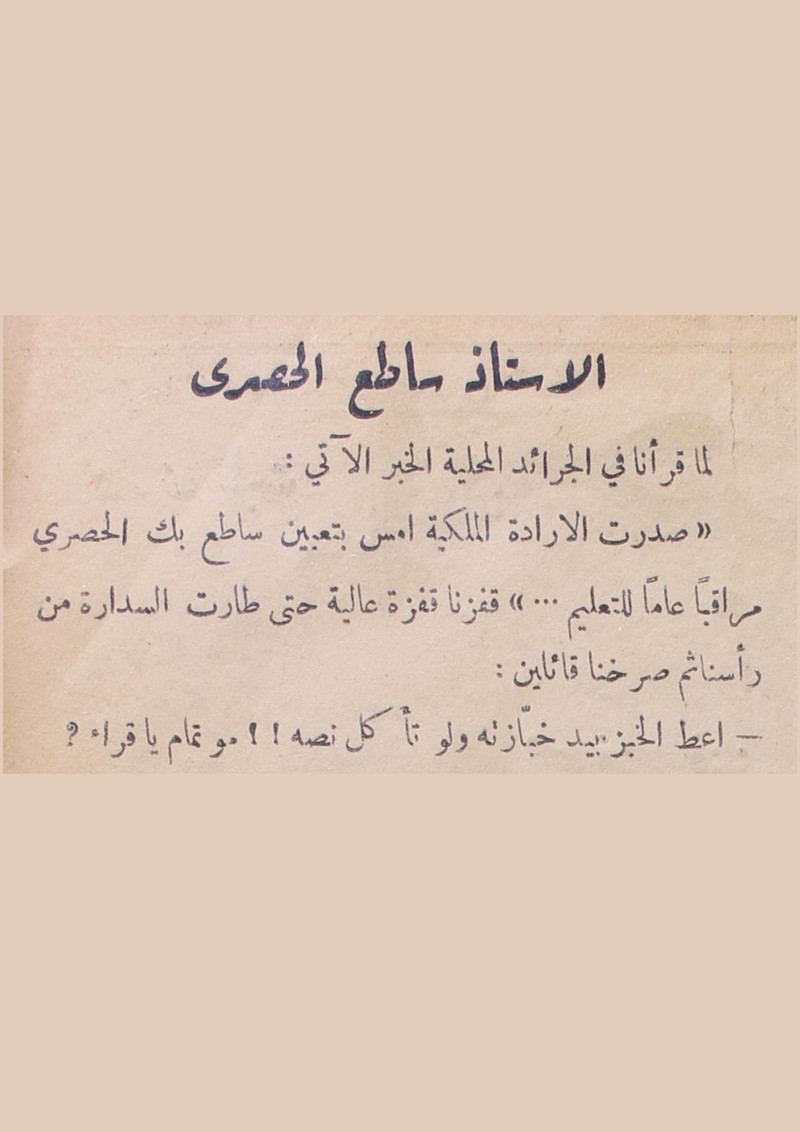 الاستاذ ساطع الحصرى
لما قرأنا في الجرائد المحلية الخبر الآتي :
« صدرت الارادة الملكية امس بتعيين ساطع بك الحصري
مراقباً عاماً للتعليم ... » قفزنا قفزة عالية حتى طارت السدارة من
رأسنا ثم صرخنا قائلين :
— اعط الخبز بيد خبّازته ولو تأكل نصه ! ! مو تمام يا قراء ?